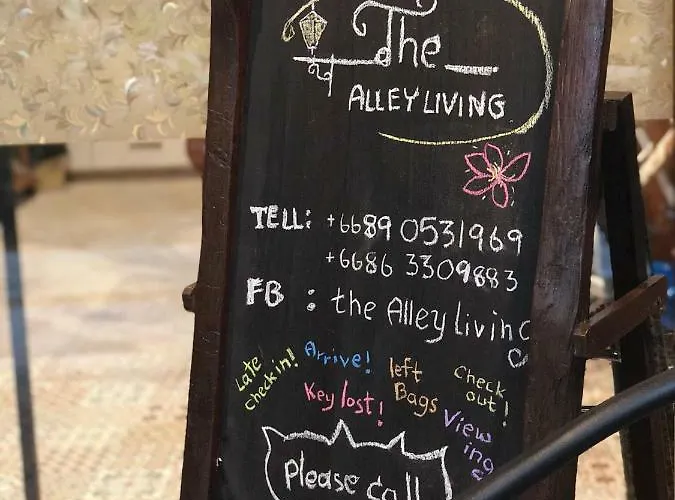 The
ALLEY LIVING
TELL: +6689 0531969
+6686 3309883
FB : the Alley Living
Late check in!
Arrive!
Key lost!
left
Bags
Check
out!
View
ing
Please call